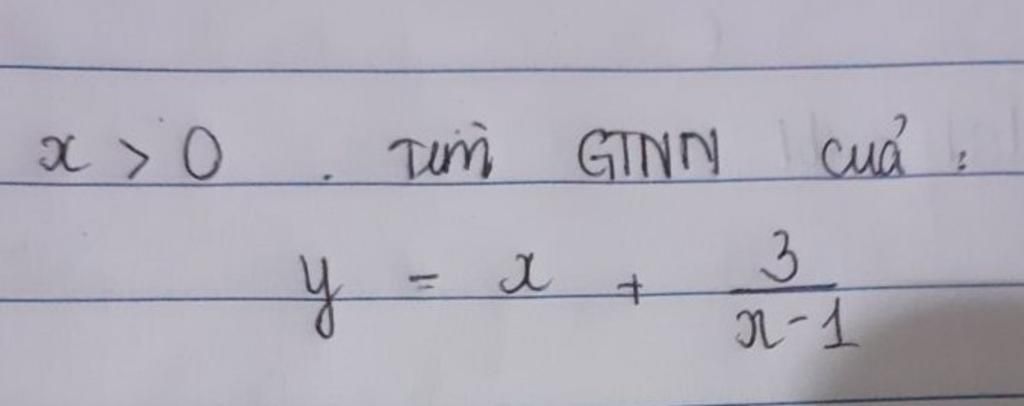 x > 0 . Tìm GTNN của :
y = x + 3/(x-1)